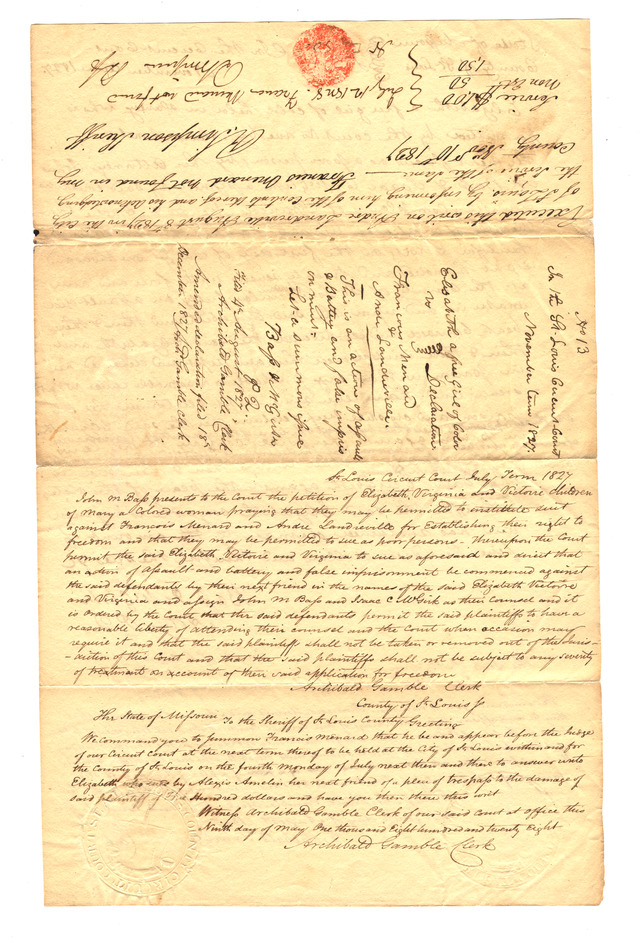 Executed this writ on Andre Landreville August 8th 1827 in the City
of St Louis by informing him of the contents thereof and his acknowledging
the service of the same — Francis Menard not found in my
County Nov 10th 1827
R Simpson Sheriff
Service $1.00
Non Est 50
1,50
July 12 1828 Francis Menard not found
R Simpson Shff
No 13
In the St. Louis Circuit Court
November term 1827.
Elisabeth a free Girl of Color
vs Declaration
Francois Menard
&
Andre Landreville
This is an action of assault
& Battery and false impris
onment.
Let a Summons issue
Bass & McGirk
P. Q.
Filed 4th August 1827
Archibald Gamble Clerk
Amended declaration filed 18th
December 1827 Archd Gamble Clerk
St Louis Circuit Court July Term 1827
John M Bass presents to the Court the petition of Elizabeth, Virginia and Victoire children
of Mary a Colored woman praying that they may be permitted to institute suit
against Francois Menard and Andre Landreville for Establishing their right to
freedom and that they may be permitted to sue as poor persons - thereupon the Court
permit the said Elizabeth, Victoire and Virginia to sue as aforesaid and direct that
an action of assault and battery and false imprisonment be commenced against
the said defendants by their next friend in the names of the said Elizabeth Victoire
and Virginia and assign John M Bass and Isaac C McGirk as their counsel and it
is ordered by the Court that the said defendants permit the said plaintiffs to have a
reasonable liberty of attending their counsel and the Court when occasion may
require it and that the said plaintiffs shall not be taken or removed out of the Juris-
-diction of this Court and that the said plaintiffs shall not be subject to any severity
of treatment on account of their said application for freedom
Archibald Gamble Clerk
County of St Louis Ss
The State of Missouri To the Sheriff of St Louis County Greeting
We command you to summon Francois Menard that he be and appear before the Judge
of our Circuit court at the next term thereof to be held at the City of St Louis within and for
the County of St Louis on the fourth Monday of July next then and there to answer unto
Elizabeth who sues by Alexis Amelin her next friend of a plea of trespass to the damage of
said plaintiff of Hundred dollars and have you then there this writ
Witness Archibald Gamble Clerk of our said court at office this
Ninth day of May One thousand and Eight hundred and twenty Eight
Archibald Gamble Clerk